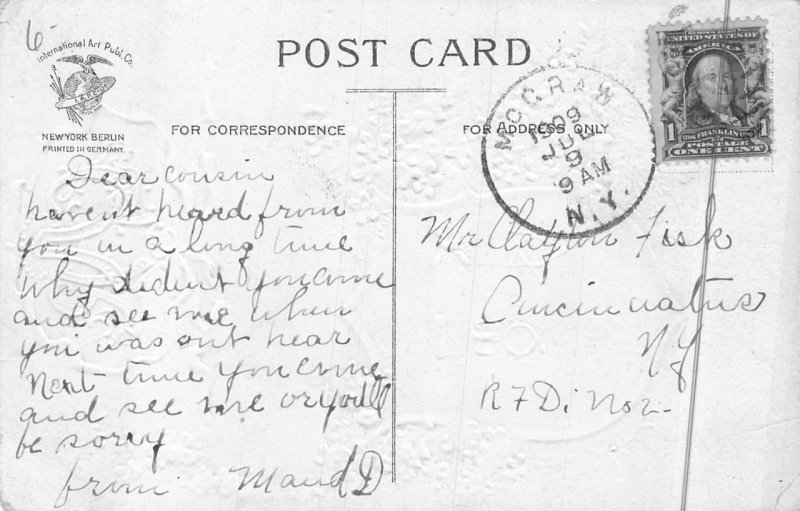 6-
International Art Publ. Co.
NEW YORK BERLIN
PRINTED IN GERMANY.
POST CARD
FOR CORRESPONDENCE
FOR ADDRESS ONLY
McGRAW
1909
JUL
9
9 AM
N.Y.
UNITED STATES OF
AMERICA
1 FRANKLIN 1
POSTAGE
ONE CENT
Dear cousin
havent heard from
you in a long time
Why dident you come
and see me when
you was out hear
Next time you come
and see me or you'll
be sorry
from Maud D
Mr Clayton Fisk
Cincinnatus
NY
R F D. No 2-